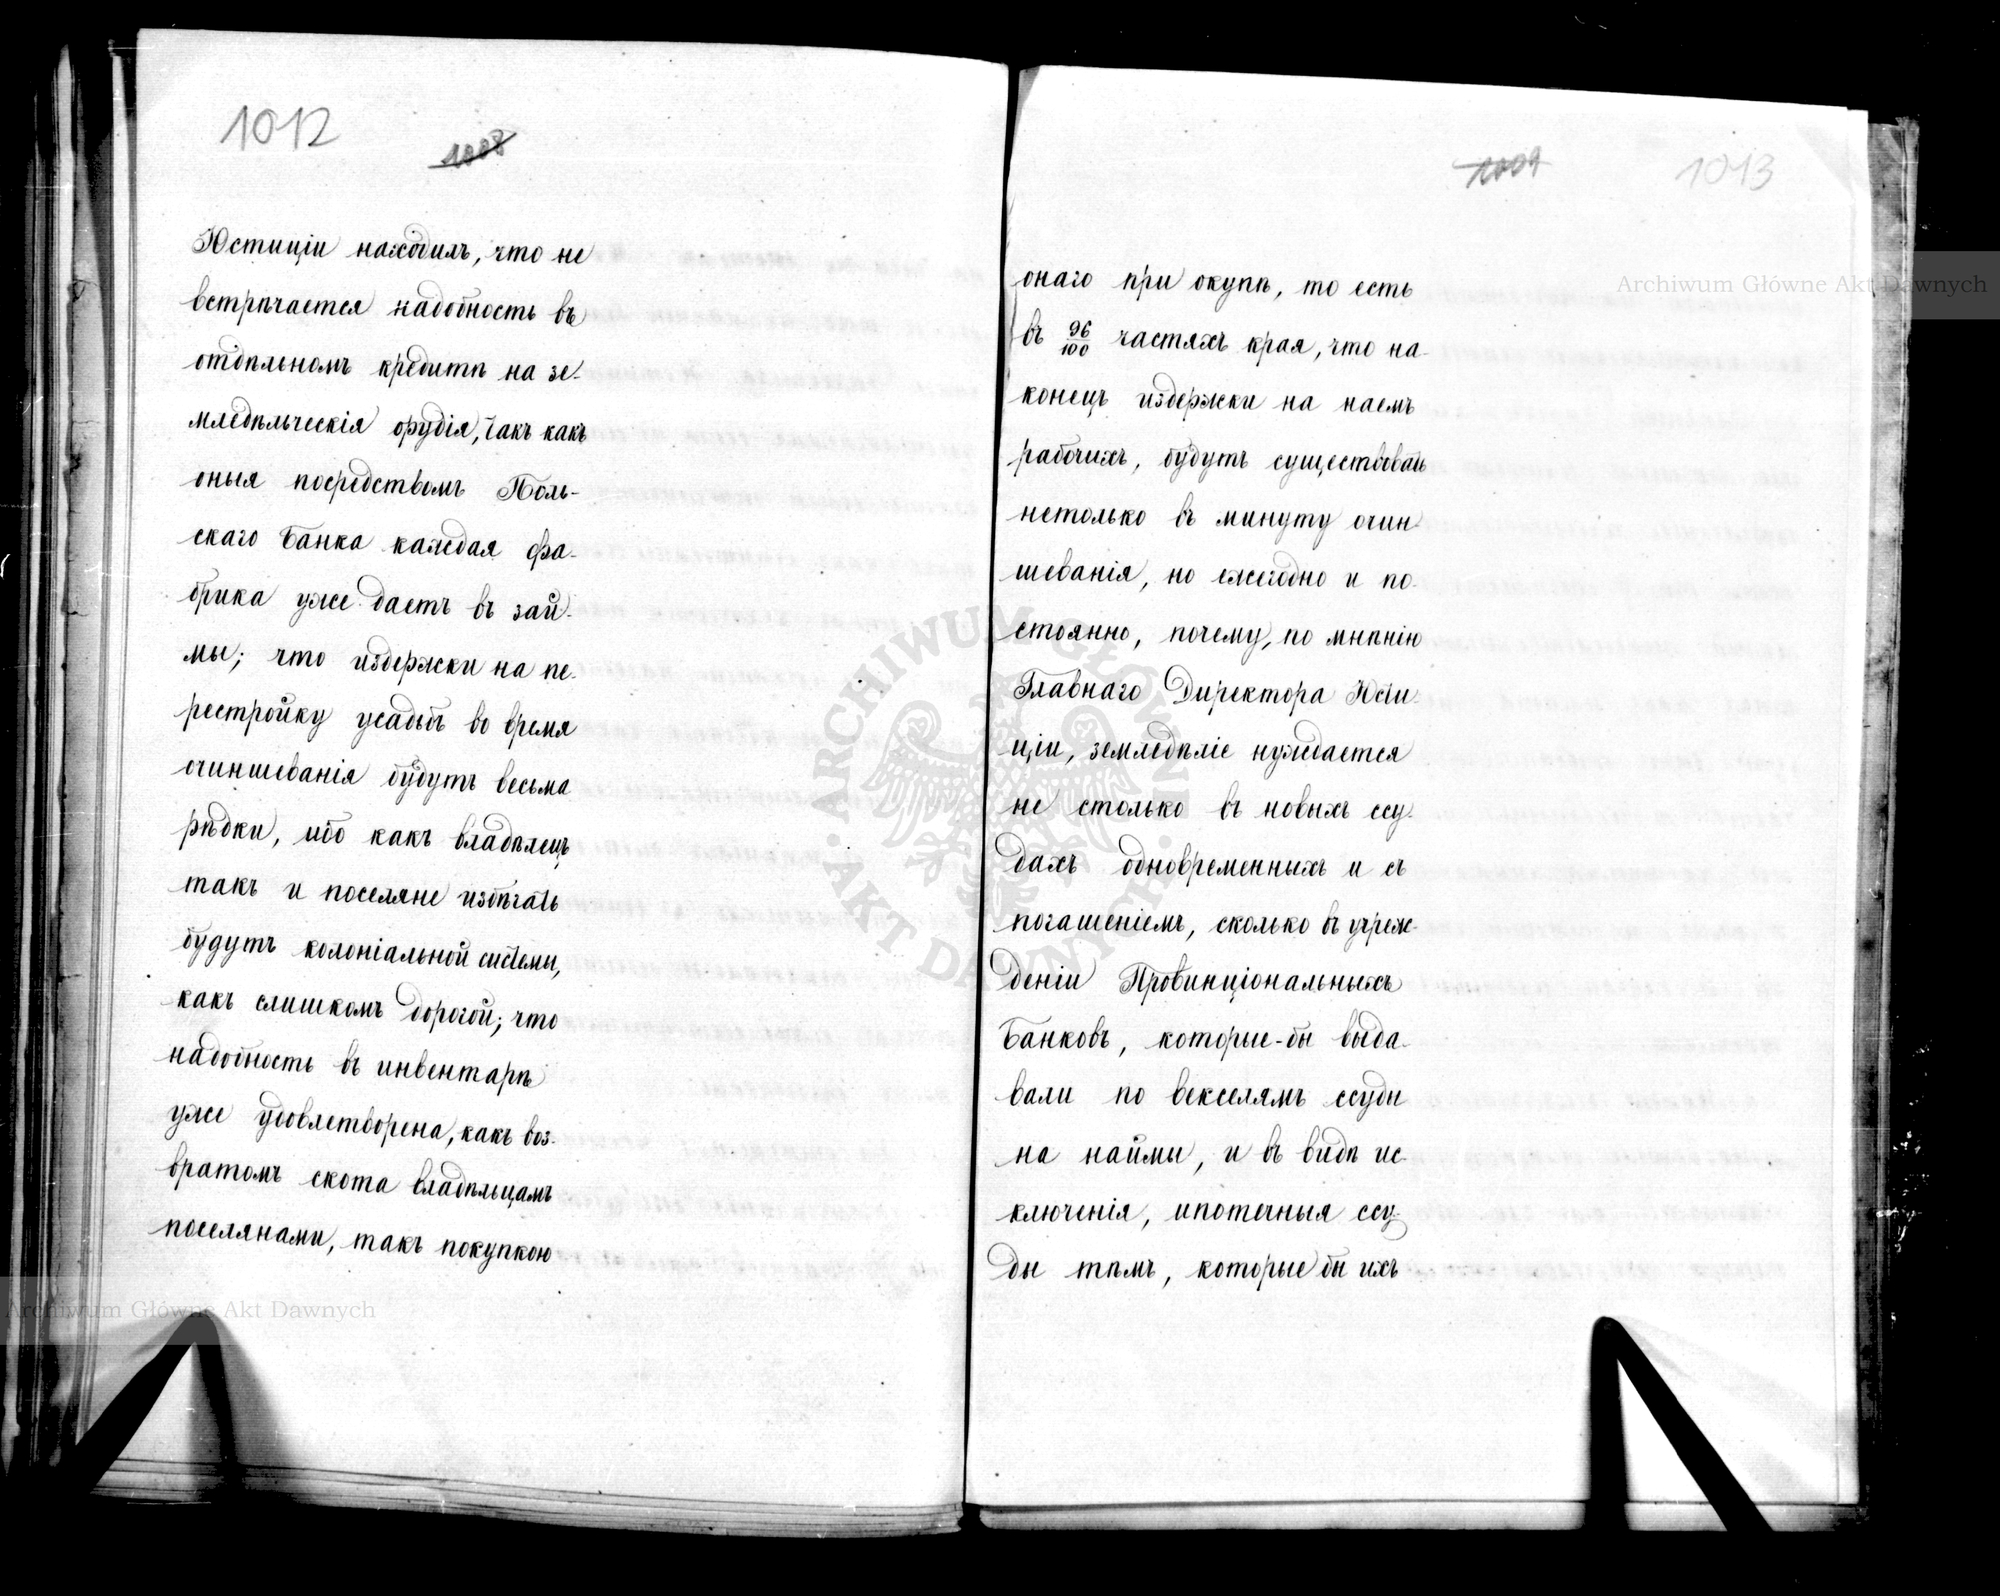 1012
1008
Юстиціи находилъ, что не
встрѣчается надобность въ
отдѣльномъ кредитѣ на зе-
мледѣльческія орудія, такъ какъ
оныя посредствомъ Поль-
скаго Банка каждая фа-
брика уже даетъ въ зай-
мы; что издержки на пе-
рестройку усадьбъ во время
очиншеванія будутъ весьма
рѣдки, ибо какъ владѣлецъ
такъ и поселяне избѣгать
будутъ колоніальной системы,
какъ слишкомъ дорогой; что
надобность въ инвентарѣ
уже удовлетворена, какъ воз-
вратомъ скота владѣльцамъ
поселянами, такъ покупкою
1009 1013
онаго при окупѣ, то есть
въ 96/100 частяхъ края, что на-
конецъ издержки на наемъ
рабочихъ, будутъ существовать
нетолько въ минуту очин-
шеванія, но ежегодно и по-
стоянно, почему, по мнѣнію
Главнаго Директора Юсти-
ціи, земледѣліе нуждается
не столько въ новыхъ ссу-
дахъ одновременныхъ и съ
погашеніемъ, сколько въ учреж-
деніи Провинціональныхъ
Банковъ, которые-бы выда-
вали по векселямъ ссуды
на наймы, и въ видѣ ис-
ключенія, ипотечныя ссу-
ды тѣмъ, которые бы ихъ
Archiwum Główne Akt Dawnych
ARCHIWUM GŁÓWNE AKT DAWNYCH
Archiwum Główne Akt Dawnych